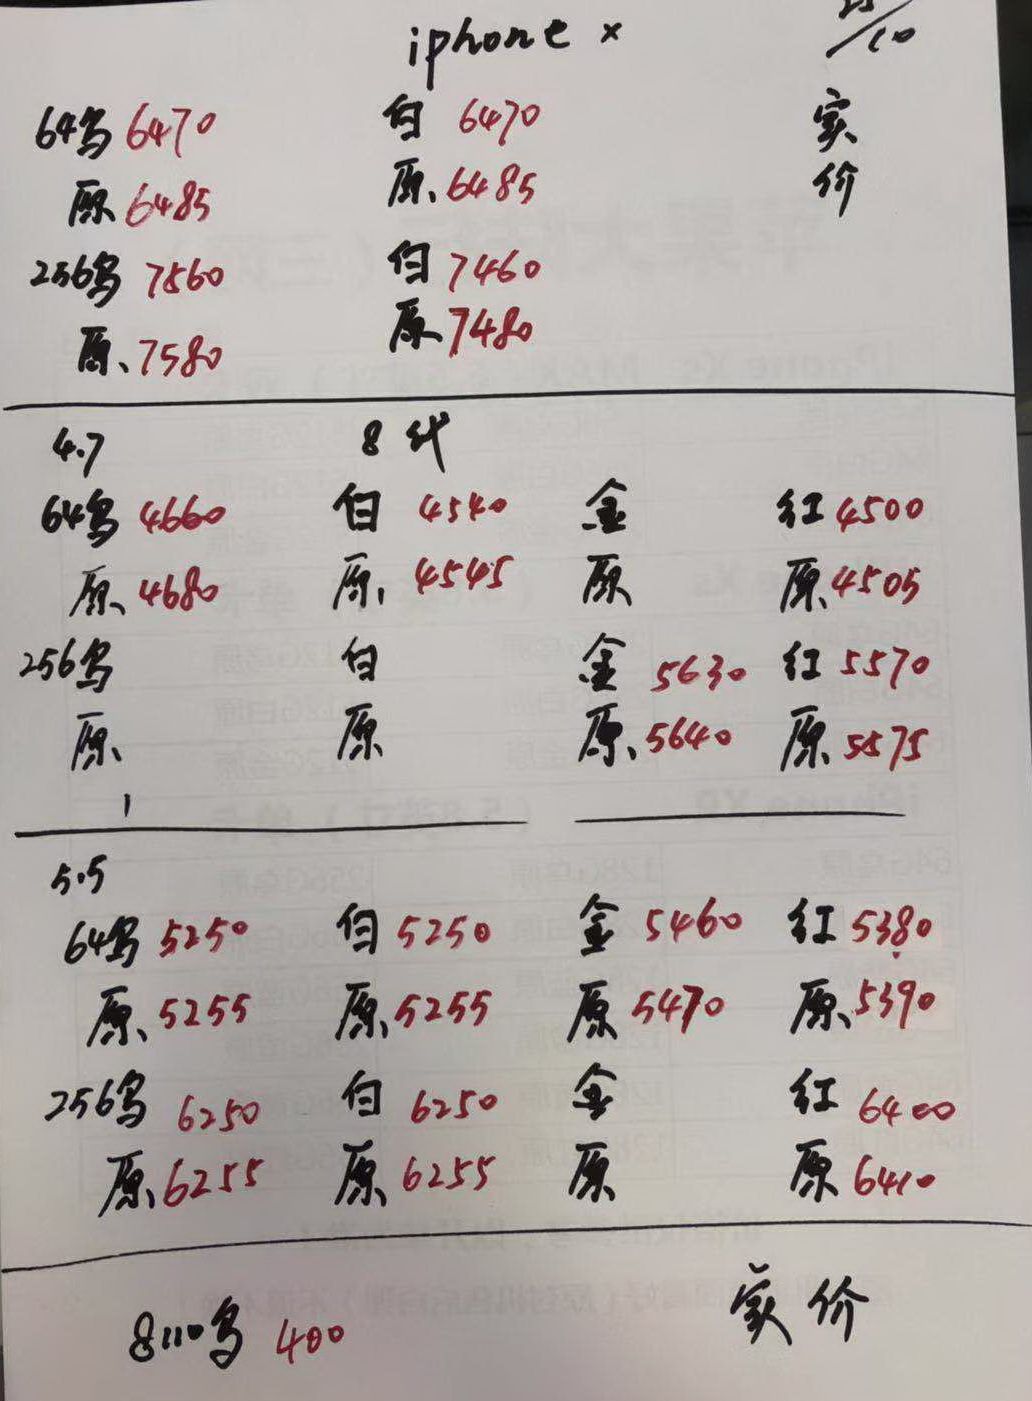 iphone x 25/10
64乌 6470 白 6470 实
原 6485 原 6485 价
256乌 7560 白 7460
原 7580 原 7480
4.7 8代
64乌 4660 白 4540 金 红 4500
原 4680 原 4545 原 原 4505
256乌 白 金 5630 红 5570
原 原 原 5640 原 5575
5.5
64乌 5250 白 5250 金 5460 红 5380
原 5255 原 5255 原 5470 原 5390
256乌 6250 白 6250 金 红 6400
原 6255 原 6255 原 原 6410
8110乌 400 实价